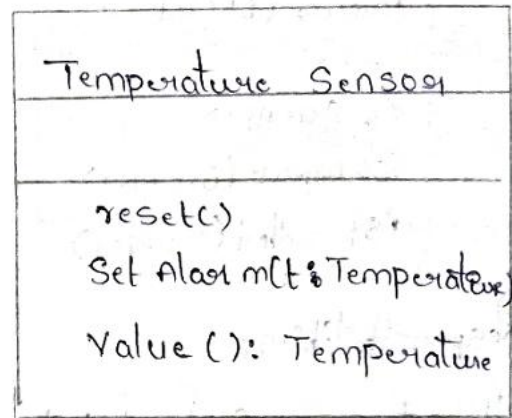 Temperature Sensor
reset()
Set Alarm(t: Temperature)
Value (): Temperature